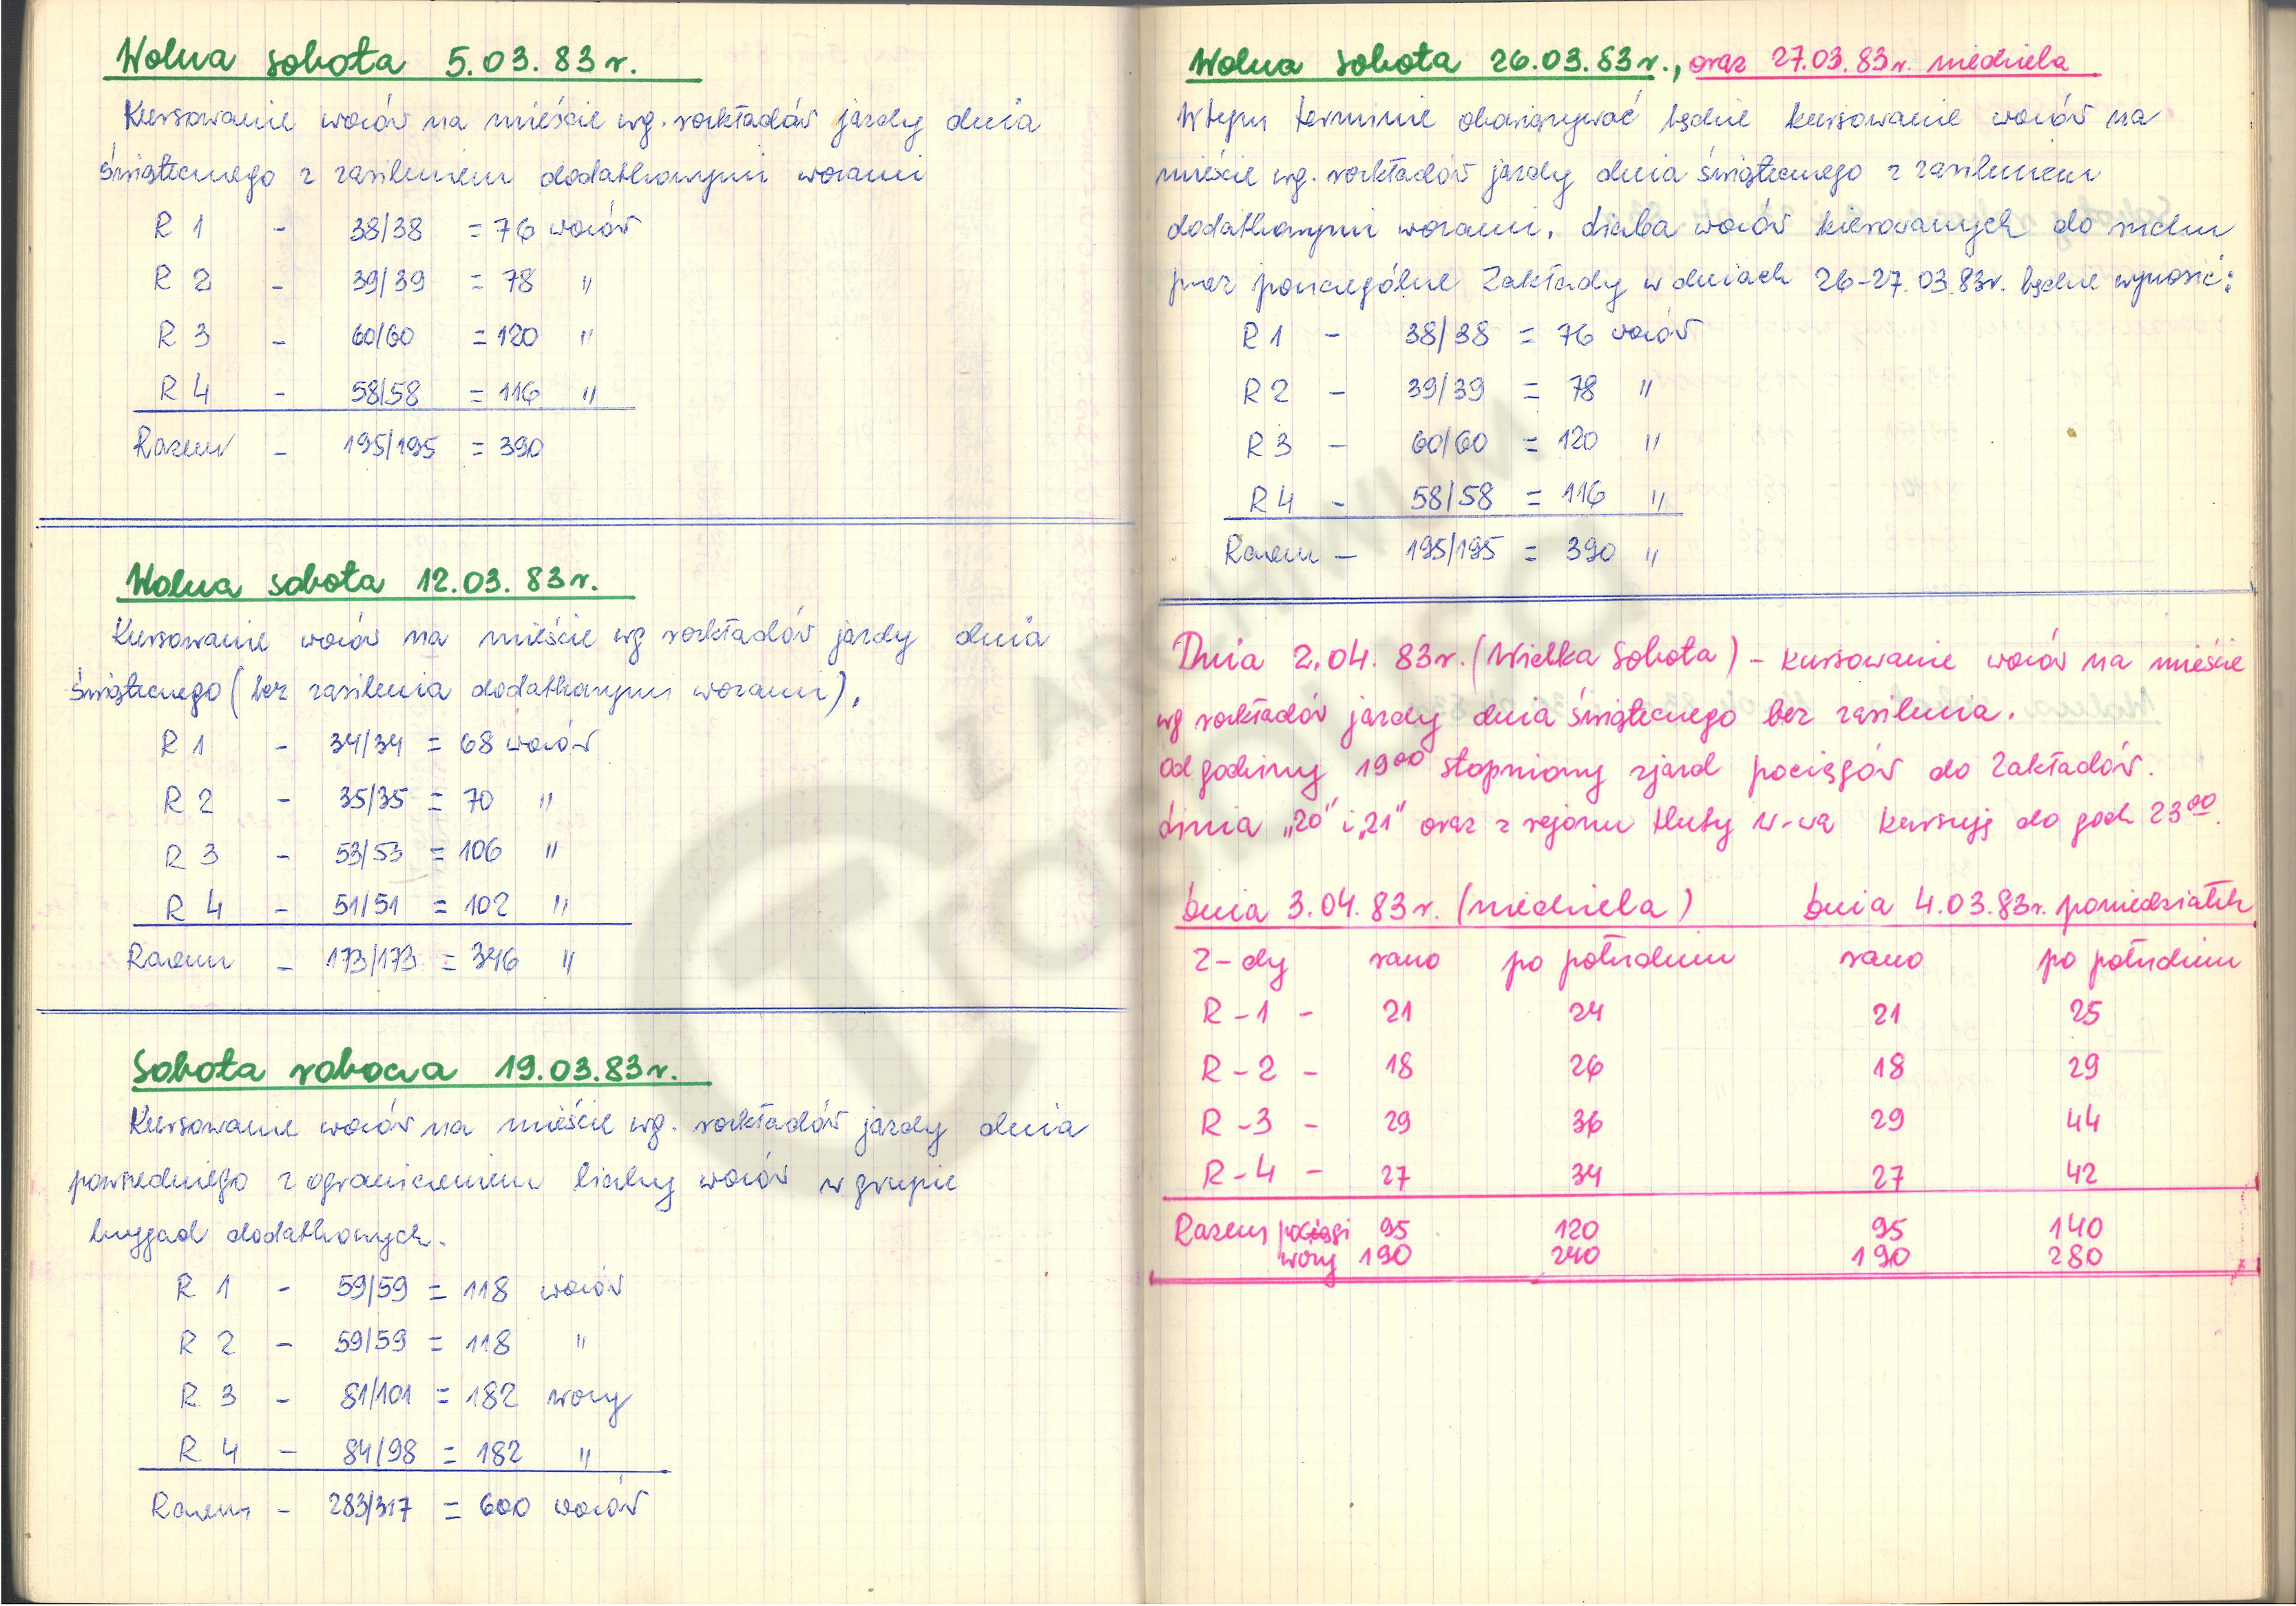 Wolna sobota 5.03.83r.
Kursowanie wozów na mieście wg. rozkładów jazdy dnia
świątecznego z zasileniem dodatkowymi wozami
R 1 - 38/38 = 76 wozów
R 2 - 39/39 = 78 "
R 3 - 60/60 = 120 "
R 4 - 58/58 = 116 "
Razem - 195/195 = 390
Wolna sobota 12.03.83r.
Kursowanie wozów na mieście wg rozkładów jazdy dnia
świątecznego (bez zasilenia dodatkowymi wozami).
R 1 - 34/34 = 68 wozów
R 2 - 35/35 = 70 "
R 3 - 53/53 = 106 "
R 4 - 51/51 = 102 "
Razem - 173/173 = 346 "
Sobota robocza 19.03.83r.
Kursowanie wozów na mieście wg. rozkładów jazdy dnia
powszedniego z ograniczeniem liczby wozów w grupie
brygad dodatkowych.
R 1 - 59/59 = 118 wozów
R 2 - 59/59 = 118 "
R 3 - 81/101 = 182 wozy
R 4 - 84/98 = 182 "
Razem - 283/317 = 600 wozów
Wolna sobota 26.03.83r., oraz 27.03.83r. niedziela
W tym terminie obowiązywać będzie kursowanie wozów na
mieście wg. rozkładów jazdy dnia świątecznego z zasileniem
dodatkowymi wozami. Liczba wozów kierowanych do ruchu
przez poszczególne Zakłady w dniach 26-27.03.83r. będzie wynosić:
R 1 - 38/38 = 76 wozów
R 2 - 39/39 = 78 "
R 3 - 60/60 = 120 "
R 4 - 58/58 = 116 "
Razem - 195/195 = 390 "
Dnia 2.04.83r. (Wielka Sobota) - kursowanie wozów na mieście
wg rozkładów jazdy dnia świątecznego bez zasilenia.
Od godziny 19⁰⁰ stopniowy zjazd pociągów do Zakładów.
Linia „20" i „21" oraz z rejonu Huty W-wa kursują do godz 23⁰⁰.
Dnia 3.04.83r. (niedziela) Dnia 4.03.83r. poniedziałek
Z-dy rano po południu rano po południu
R-1 - 21 24 21 25
R-2 - 18 26 18 29
R-3 - 29 36 29 44
R-4 - 27 34 27 42
Razem pociągi 95 120 95 140
wozy 190 240 190 280